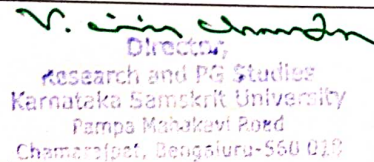 V.
Director,
Research and PG Studies
Karnataka Samskrit University
Pampa Mahakavi Road
Chamarajpet, Bengaluru-560 019